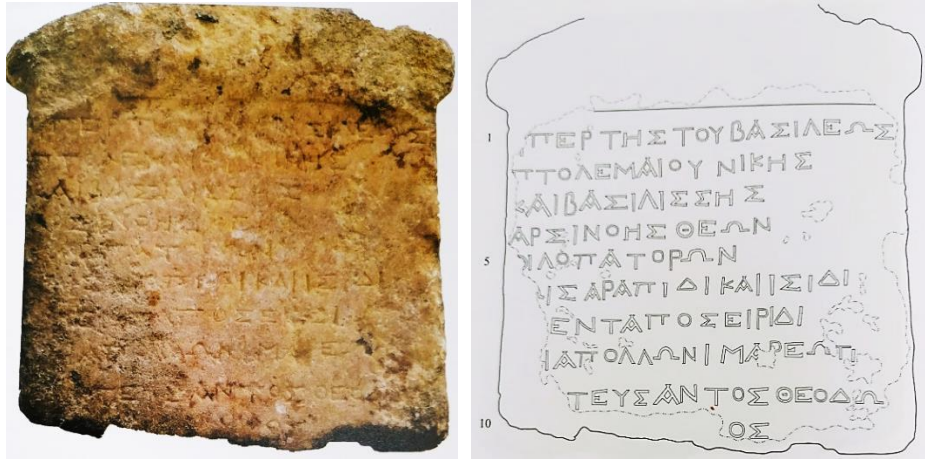 ΠΕΡ ΤΗΣ ΤΟΥ ΒΑΣΙΛΕΩΣ
ΠΤΟΛΕΜΑΙΟΥ ΝΙΚΗΣ
ΚΑΙ ΒΑΣΙΛΙΣΣΗΣ
ΑΡΣΙΝΟΗΣ ΘΕΩΝ
ΙΛΟΠΑΤΟΡΩΝ
5
ΙΣΑΡΑΠΙΔΙ ΚΑΙ ΙΣΙΔΙ
ΕΝ ΤΑΠΟΣΕΙΡΙΔΙ
ΙΑΠΟΛΛΩΝΙ ΜΑΡΕΩΤΙ
ΤΕΥΣΑΝΤΟΣ ΘΕΟΔΩ
10
ΟΣ